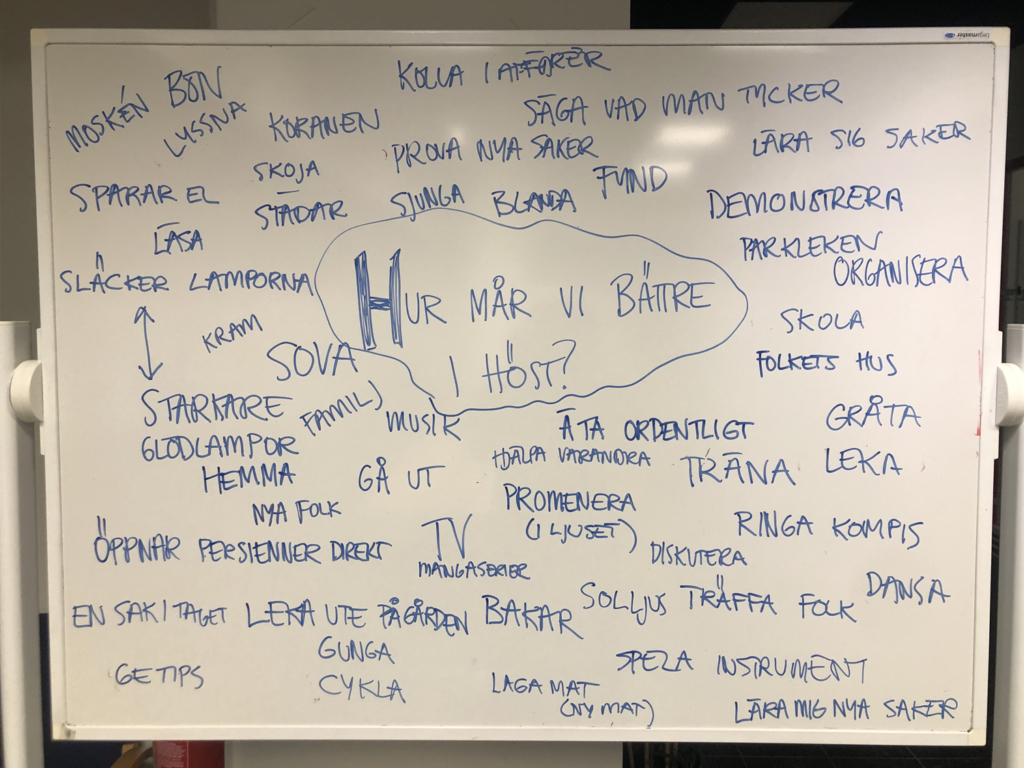 KOLLA I AFFÖRER
MOSKÉN
BÖN
LYSSNA
KORANEN
SÄGA VAD MAN TYCKER
LÄRA SIG SAKER
SKOJA
PROVA NYA SAKER
SPARAR EL
STÄDAR
SJUNGA
BLANDA
FUND
DEMONSTRERA
LÄSA
PARKLEKEN
ORGANISERA
SLÄCKER LAMPORNA
HUR MÅR VI BÄTTRE
I HÖST?
KRAM
SOVA
SKOLA
FOLKETS HUS
STARKARE
GLÖDLAMPOR
HEMMA
FAMILJ
MUSIK
ÄTA ORDENTLIGT
GRÅTA
HJÄLPA VARANDRA
TRÄNA
LEKA
GÅ UT
NYA FOLK
PROMENERA
(I LJUSET)
RINGA KOMPIS
ÖPPNAR PERSIENNER DIREKT
TV
MANGASERIER
DISKUTERA
EN SAK I TAGET
LEKA UTE PÅ GÅRDEN
BAKAR
SOLLJUS
TRÄFFA FOLK
DANSA
GUNGA
CYKLA
GE TIPS
LAGA MAT
(NY MAT)
SPELA INSTRUMENT
LÄRA MIG NYA SAKER